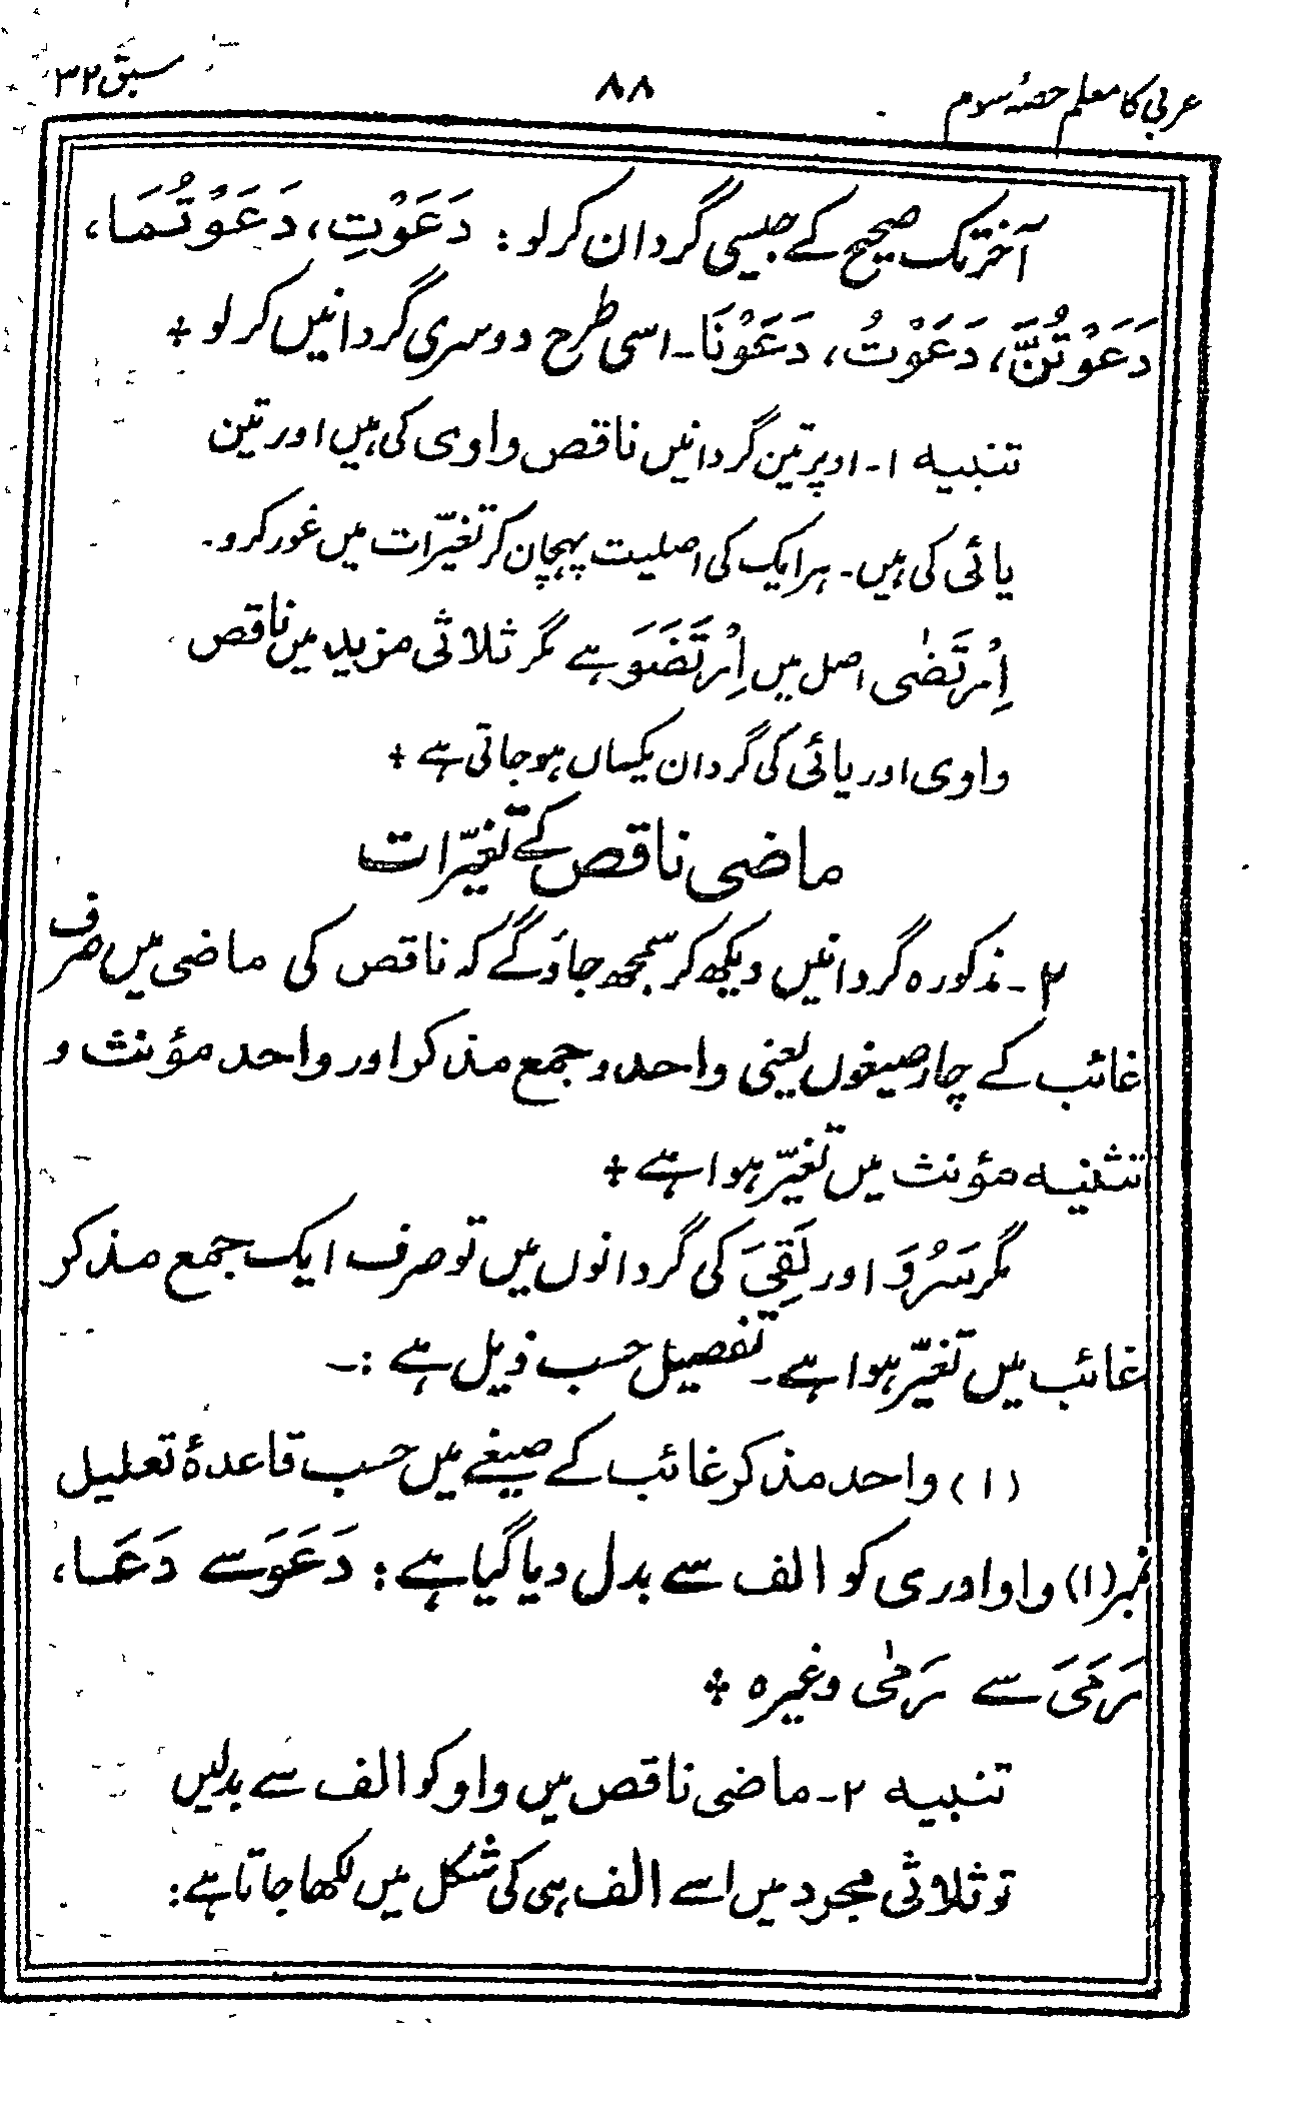 عربی کا معلم حصہٴ سوم
۸۸
سبق ۳۲
آخر تک صحیح کے جیسی گردان کر لو : دَعَوْتِ، دَعَوْتُمَا،
دَعَوْتُنَّ، دَعَوْتُ، دَعَوْنَا۔ اسی طرح دوسری گردانیں کر لو ✤
تنبیہ ۱۔ اوپر تین گردانیں ناقص واوی کی ہیں اور تین
یائی کی ہیں۔ ہر ایک کی اصلیت پہچان کر تغیّرات میں غور کرو۔
اِرْتَضٰى اصل میں اِرْتَضَوَ ہے مگر ثلاثی مزید میں ناقص
واوی اور یائی کی گردان یکساں ہو جاتی ہے ✤
ماضی ناقص کے تغیّرات
۲۔ مذکورہ گردانیں دیکھ کر سمجھ جاؤ گے کہ ناقص کی ماضی میں صرف
غائب کے چار صیغوں یعنی واحد و جمع مذکر اور واحد مؤنث و
تثنیہ مؤنث میں تغیّر ہوا ہے ✤
مگر سَرُوَ اور لَقِيَ کی گردانوں میں تو صرف ایک جمع مذکر
غائب میں تغیّر ہوا ہے۔ تفصیل حسب ذیل ہے :۔
(۱) واحد مذکر غائب کے صیغے میں حسب قاعدۂ تعلیل
نمبر (۱) واو اور ی کو الف سے بدل دیا گیا ہے : دَعَوَ سے دَعَا،
رَمَيَ سے رَمٰى وغیرہ ✤
تنبیہ ۲۔ ماضی ناقص میں واو کو الف سے بدلیں
تو ثلاثی مجرد میں اسے الف ہی کی شکل میں لکھا جاتا ہے :